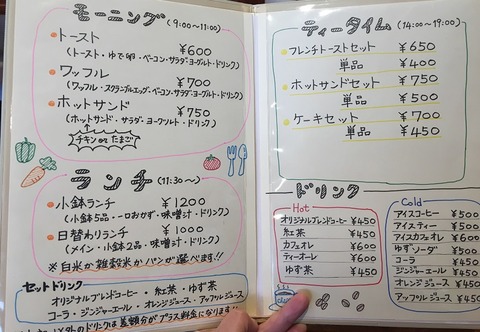 モーニング (9:00〜11:00)
・トースト ¥600
(トースト・ゆで卵・ベーコン・サラダ・ヨーグルト・ドリンク)
・ワッフル ¥700
(ワッフル・スクランブルエッグ・ベーコン・サラダ・ヨーグルト・ドリンク)
・ホットサンド ¥750
(ホットサンド・サラダ・ヨーグルト・ドリンク)
チキン or たまご
ランチ (11:30〜)
・小鉢ランチ ¥1200
(小鉢5品・一口おかず・味噌汁・ドリンク)
・日替わりランチ ¥1000
(メイン・小鉢2品・味噌汁・ドリンク)
※白米か雑穀米かパンが選べます!!
セットドリンク
オリジナルブレンドコーヒー・紅茶・ゆず茶
コーラ・ジンジャーエール・オレンジジュース・アップルジュース
以外のドリンクは差額分がプラス料金になります!
ティータイム (14:00〜19:00)
・フレンチトーストセット ¥650
単品 ¥400
・ホットサンドセット ¥750
単品 ¥500
・ケーキセット ¥700
単品 ¥450
ドリンク
Hot
オリジナルブレンドコーヒー ¥450
紅茶 ¥450
カフェオレ ¥600
ティーオーレ ¥600
ゆず茶 ¥450
Cold
アイスコーヒー ¥500
アイスティー ¥500
アイスカフェオレ ¥600
ゆずソーダ ¥500
コーラ ¥450
ジンジャーエール ¥450
オレンジジュース ¥450
アップルジュース ¥450